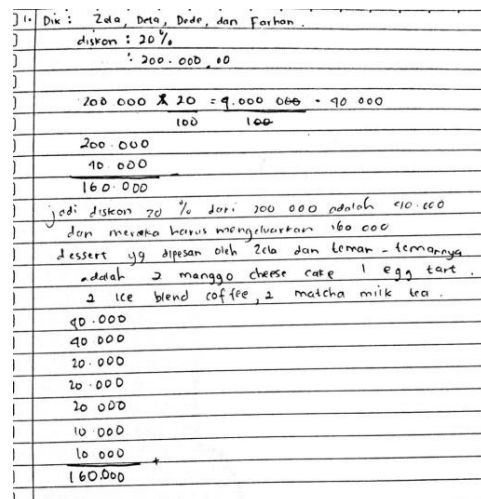 1. Dik : Zela, Dela, Dede, dan Farhan.
diskon : 20 %
: 200.000,00
200 000 X 20 = 4.000 000 = 40 000
100 100
200.000
40.000
160.000
jadi diskon 20 % dari 200 000 adalah 40.000
dan mereka harus mengeluarkan 160 000
dessert yg dipesan oleh Zela dan teman-temannya
adalah 2 manggo cheese cake 1 egg tart.
2 Ice blend coffee, 2 matcha milk tea.
40.000
40.000
20.000
20.000
20 000
10.000
10 000
+
160.000